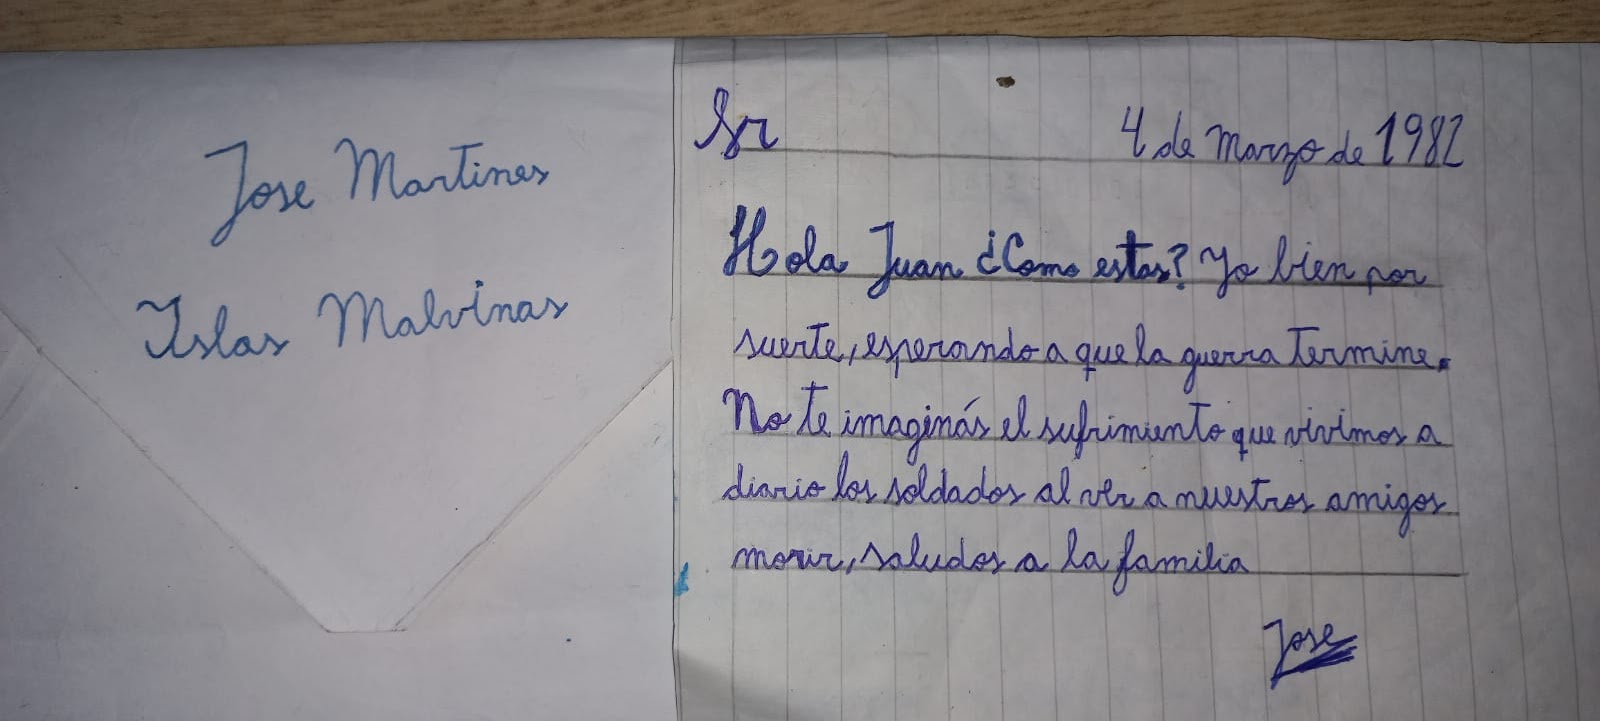 Jose Martines
Islas Malvinas
Sr
4 de Marzo de 1982
Hola Juan ¿Como estas? Yo bien por
suerte, esperando a que la guerra termine.
No te imaginás el sufrimiento que vivimos a
diario los soldados al ver a nuestros amigos
morir, saludos a la familia
Jose